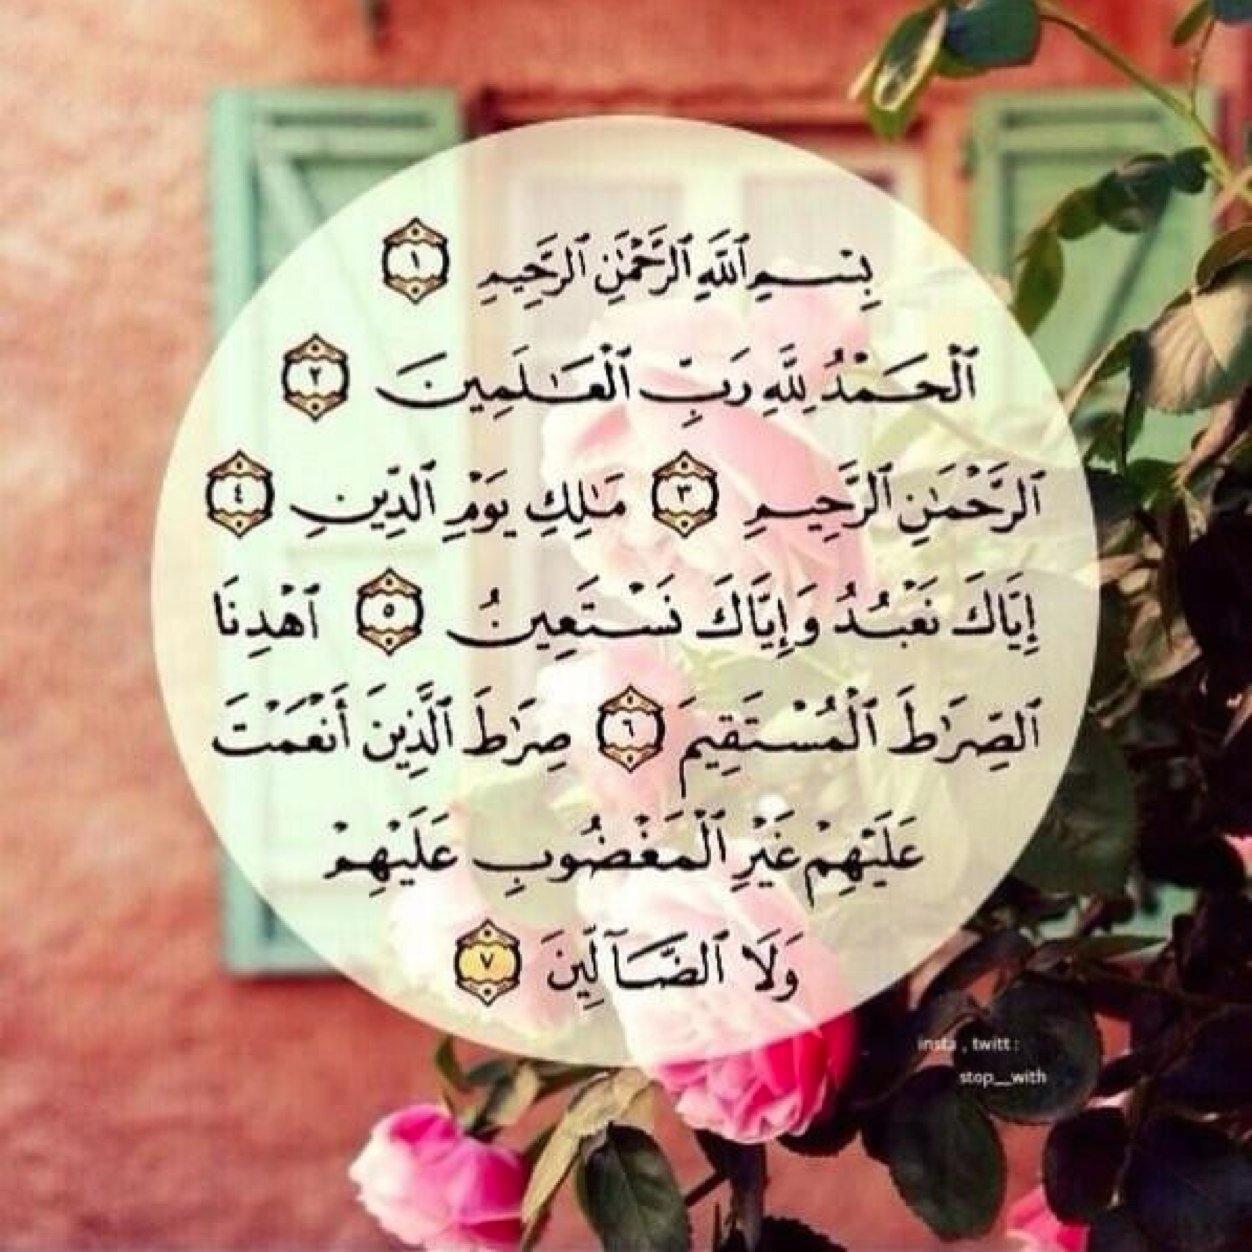 بِسۡمِ ٱللَّهِ ٱلرَّحۡمَٰنِ ٱلرَّحِيمِ ١
ٱلۡحَمۡدُ لِلَّهِ رَبِّ ٱلۡعَٰلَمِينَ ٢
ٱلرَّحۡمَٰنِ ٱلرَّحِيمِ ٣ مَٰلِكِ يَوۡمِ ٱلدِّينِ ٤
إِيَّاكَ نَعۡبُدُ وَإِيَّاكَ نَسۡتَعِينُ ٥ ٱهۡدِنَا
ٱلصِّرَٰطَ ٱلۡمُسۡتَقِيمَ ٦ صِرَٰطَ ٱلَّذِينَ أَنۡعَمۡتَ
عَلَيۡهِمۡ غَيۡرِ ٱلۡمَغۡضُوبِ عَلَيۡهِمۡ
وَلَا ٱلضَّآلِّينَ ٧
insta , twitt :
stop__with